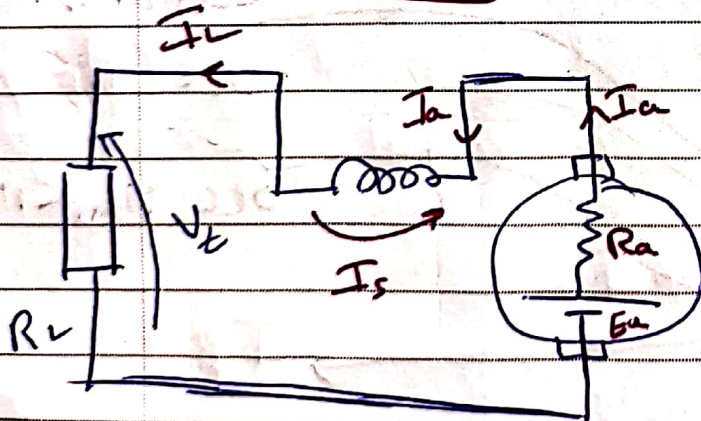 IL
Ia
Ia
Vt
Is
Ra
Ea
RL